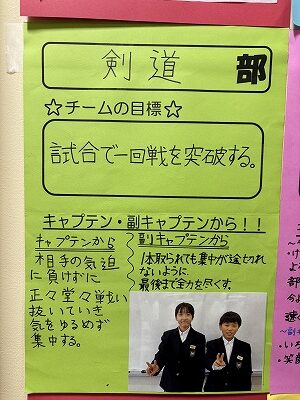 剣道 部
☆チームの目標☆
試合で一回戦を突破する。
キャプテン・副キャプテンから！！
キャプテンから
相手の気迫
に負けずに
正々堂々戦い
抜いていき
気をゆるめず
集中する。
副キャプテンから
1本取られても集中が途切れ
ないように
最後まで全力を尽くす。